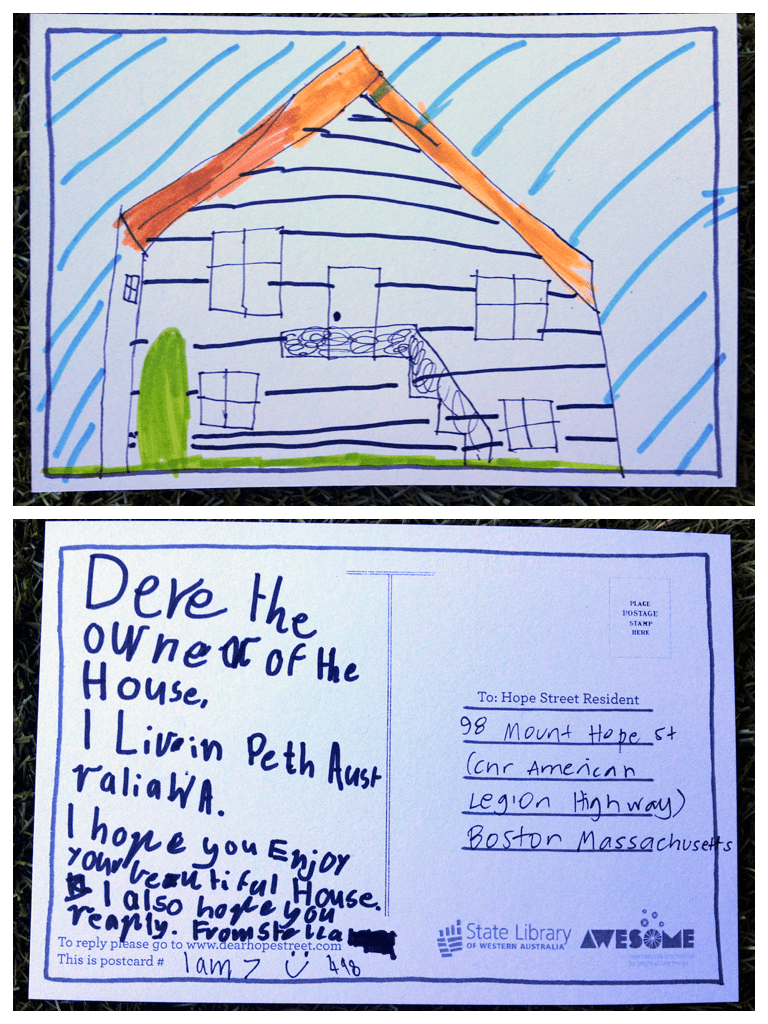 Dere the
owner of the
House,
I Live in Peth Aust
raliaWA.
I hope you Enjoy
your beautiful House.
I also hope you
reaply. From Stella
To reply please go to www.dearhopestreet.com
This is postcard # 498
I am 7
PLACE
POSTAGE
STAMP
HERE
To: Hope Street Resident
98 Mount Hope St
(cnr American
Legion Highway)
Boston Massachusetts
State Library
OF WESTERN AUSTRALIA
AWESOME